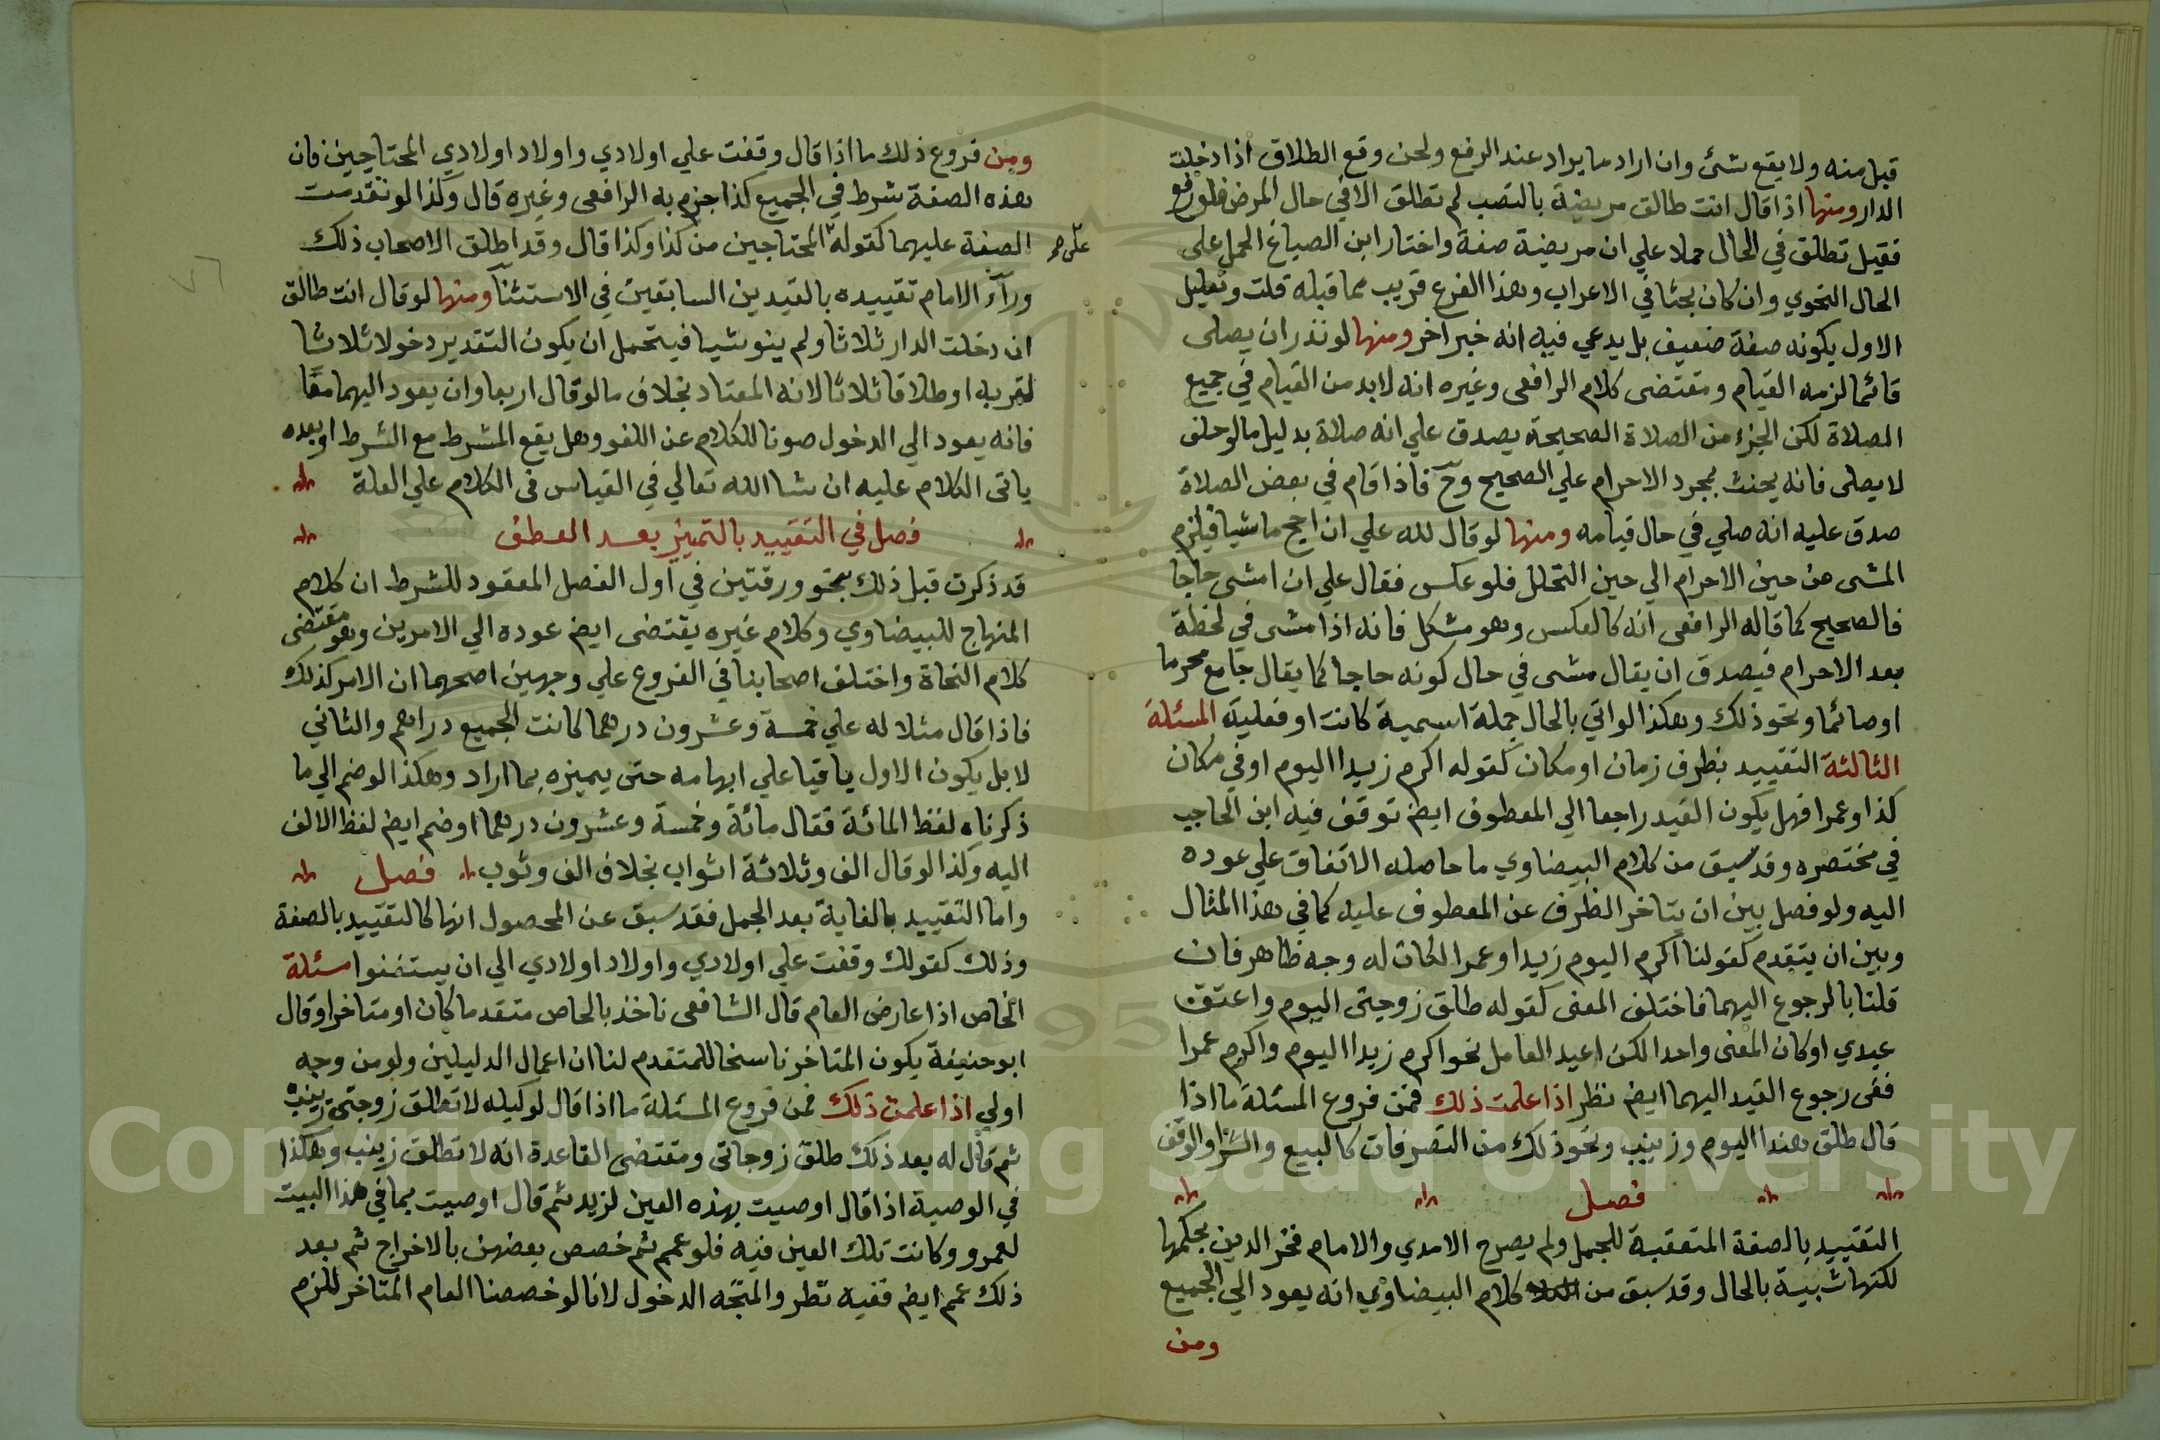 قبل منه ولا يقع شئ وان اراد ما يراد عند الرفع ولحن وقع الطلاق اذا دخلت
الدار ومنها اذا قال انت طالق مريضة بالنصب لم تطلق الا في حال المرض فلو رفع
فقيل تطلق في الحال حملا علي ان مريضة صفة واختار ابن الصباغ الحمل على
الحال النحوي وان كان لحنا في الاعراب وهذا الفرع قريب مما قبله قلت وتعليل
الاول بكونه صفة ضعيف بل يدعي فيه انه خبر اخر ومنها لو نذر ان يصلى
قائما لزمه القيام ومقتضى كلام الرافعى وغيره انه لا بد من القيام في جميع
الصلاة لكن الجزء من الصلاة الصحيحة يصدق علي انه صلاة بدليل ما لو حلف
لا يصلى فانه يحنث بمجرد الاحرام علي الصحيح وح فاذا قام في بعض الصلاة
صدق عليه انه صلي في حال قيامه ومنها لو قال لله علي ان احج ماشيا فيلزم
المشى من حين الاحرام الي حين التحلل فلو عكس فقال علي ان امشى حاجا
فالصحيح كما قاله الرافعى انه كالعكس وهو مشكل فانه اذا مشى في لحظة
بعد الاحرام فيصدق ان يقال مشى في حال كونه حاجا كما يقال جامع محرما
او صائما ونحو ذلك وهكذا لو اتي بالحال جملة اسمية كانت او فعلية المسئلة
الثالثة التقييد بظرف زمان او مكان كقوله اكرم زيدا اليوم او في مكان
كذا وعمرا فهل يكون القيد راجعا الي المعطوف ايض توقف فيه ابن الحاجب
في مختصره وقد سبق من كلام البيضاوي ما حاصله الاتفاق علي عوده
اليه ولو فصل بين ان يتاخر الظرف عن المعطوف عليه كما في هذا المثال
وبين ان يتقدم كقولنا اكرم اليوم زيدا وعمرا لكان له وجه ظاهر فان
قلنا بالرجوع اليهما فاختلف المعنى كقوله طلق زوجتى اليوم واعتق
عبدي او كان المعنى واحدا لكن اعيد العامل نحو اكرم زيدا اليوم واكرم عمرا
ففى رجوع القيد اليهما ايض نظر اذا علمت ذلك فمن فروع المسئلة ما اذا
قال طلق هندا اليوم وزينب ونحو ذلك من التصرفات كالبيع والشرا والوقف
فصل
التقييد بالصفة المتعقبة للجمل ولم يصرح الامدي والامام فخر الدين بحكمها
لكنها شبيهة بالحال وقد سبق من كلام البيضاوي انه يعود الي الجميع
ومن
ومن فروع ذلك ما اذا قال وقفت علي اولادي واولاد اولادي المحتاجين فان
هذه الصفة شرط في الجميع كذا جزم به الرافعى وغيره قال وكذا لو تقدمت
الصفة عليهما كقوله المحتاجين من كذا وكذا قال وقد اطلق الاصحاب ذلك
على
وراء الامام تقييده بالقيدين السابقين في الاستثنا ومنها لو قال انت طالق
ان دخلت الدار ثلاثا ولم ينو شيا فيحتمل ان يكون التقدير دخولا ثلاثا
لقربه او طلاقا ثلاثا لانه المعتاد بخلاف ما لو قال اربعا وان يعود اليهما معا
فانه يعود الي الدخول صونا للكلام عن اللغو وهل يقع المشرط مع الشرط او بعده
ياتى الكلام عليه ان شا الله تعالي في القياس فى الكلام علي العلة
فصل في التقييد بالتمييز بعد العطف
قد ذكرت قبل ذلك بنحو ورقتين في اول الفصل المعقود للشرط ان كلام
المنهاج للبيضاوي وكلام غيره يقتضى ايض عوده الي الامرين وهو مقتضى
كلام النحاة واختلف اصحابنا في الفروع علي وجهين اصحهما ان الامر كذلك
فاذا قال مثلا له علي خمسة وعشرون درهما كانت الجميع دراهم والثاني
لا بل يكون الاول باقيا علي ابهامه حتى يميزه بما اراد وهكذا لو ضم الي ما
ذكرناه لفظ المائة فقال مائة وخمسة وعشرون درهما او ضم ايض لفظ الالف
اليه وكذا لو قال الف وثلاثة اثواب بخلاف الف وثوب فصل
واما التقييد بالغاية بعد الجمل فقد سبق عن المحصول انها كالتقييد بالصفة
وذلك كقولك وقفت علي اولادي واولاد اولادي الي ان يستغنوا مسئلة
الخاص اذا عارض العام قال الشافعى ناخذ بالخاص متقدما كان او متاخرا وقال
ابو حنيفة يكون المتاخر ناسخا للمتقدم لنا ان اعمال الدليلين ولو من وجه
اولي اذا علمت ذلك فمن فروع المسئلة ما اذا قال لوكيله لا تطلق زوجتى زينب
ثم قال له بعد ذلك طلق زوجاتى ومقتضى القاعدة انه لا تطلق زينب وهكذا
في الوصية اذا قال اوصيت بهذه العين لزيد ثم قال اوصيت بما في هذا البيت
لعمرو وكانت تلك العين فيه فلو عمم ثم خصص بعضهن بالاخراج ثم بعد
ذلك عمم ايض ففيه نظر والمتجه الدخول لانا لو خصصنا العام المتاخر للزم
Copyright © King Saud University